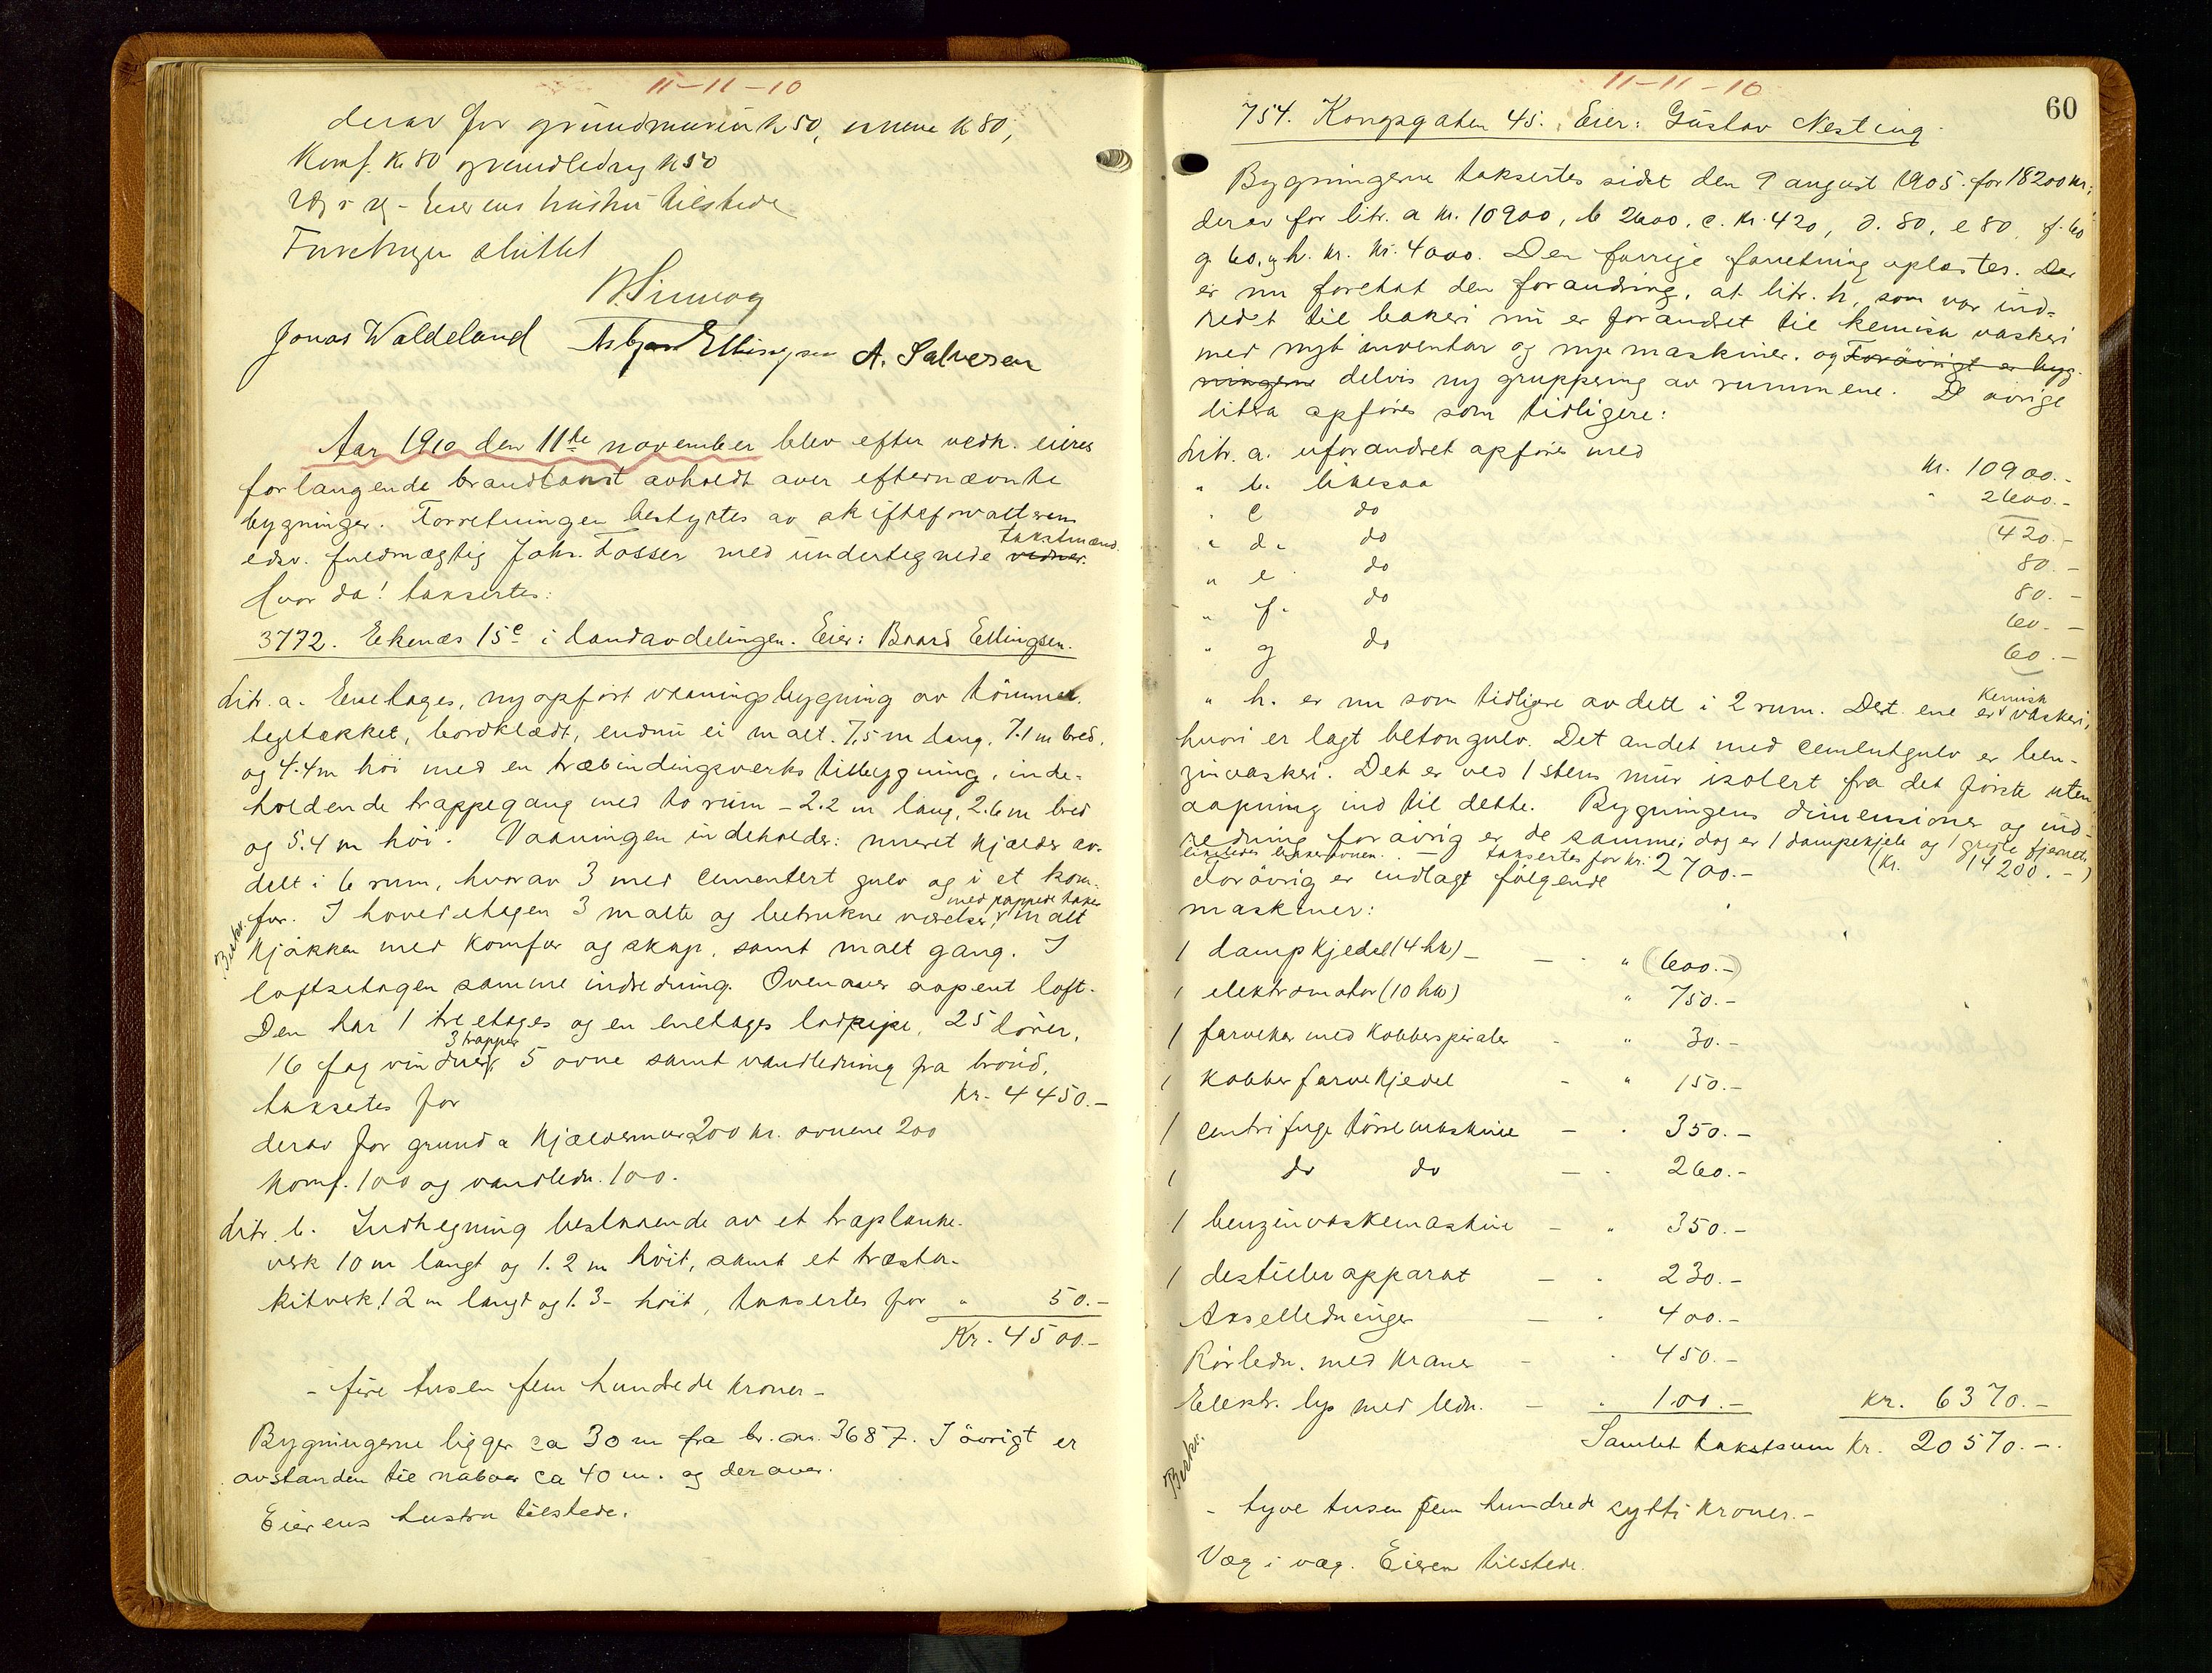 11-11-10
derav for grundmuren k 50, ovnene k 80,
Komf. K. 80 og vandledng k 50
Væg i væg - Eierens hustru tilstede
Forretningen sluttet
Jonas Waldeland Asbjørn Ellingsen A. Salvesen
Aar 1910 den 11te november blev efter vedk. eieres
forlangende brandtakst avholdt over efternævnte
bygninger. Forretningen bestyrtes av skifteforvalterens
takstmænd.
edsv. fuldmægtig Johs. Fosser med undertegnede vidner.
Hvor da! taksertes:
3772. Ekenæs 15e i landavdelingen. Eier: Baard Ellingsen.
Litr. a. Enetages, nyopført vaaningsbygning av tømmer,
teglækket, bordklædt, endnu ei malt. 7,5 m lang, 7.1 m bred,
og 4.4 m høi med en træbindingsverks tilbygning, inde-
holdende trappegang med to rum - 2.2 m lang, 2.6 m bred
og 5.4 m høi. Vaaningen indeholder: muret kjælder av-
delt i 6 rum, hvorav 3 med cementert gulv og i et kom-
med pappede taker
fur. I hovedetagen 3 malte og betrukne værelser, malt
Beskr.
kjøkken med komfur og skap, samt malt gang. I
loftsetagen samme indredning. Ovenover aapent loft.
Den har 1 tre etages og en enetages lodpipe, 25 dører,
3 trapper
16 fag vinduer, 5 ovne samt vandledning fra brønd,
taksertes for kr. 4450.-
derav for grund a kjældermur 200 kr. ovnene 200
komf. 100 og vandledn. 100.
Litr. b. Indhegning bestaaende av et træplanke-
verk 10 m langt og 1.2 m høit, samt et træsta-
kitverk 12 m langt og 1.3 - høit, taksertes for " 50.-
Kr. 4500.-
- fire tusen fem hundrede kroner -
Bygningerne ligger ca 30 m fra br. no. 3687. I øvrigt er
avstanden til naboer ca 40 m. og derover.
Eierens hustru tilstede.
11-11-10
60
754. Kongsgaten 45. Eier: Gustav Nesting.
Bygningerne taksertes sidst den 9 august 1905 for 18200 kr;
derav for litr. a kr. 10900, b 2600, c. kr. 420, d. 80, e 80, f. 60
g. 60, og h. kr. kr. 4000. Den forrige forretning oplæstes. Der
er nu foretat den forandring, at litr. h, som var ind-
redet til bakeri nu er forandret til kemisk vaskeri
med nyt inventar og nye maskiner. og Forøvrigt er byg-
ningerne delvis ny gruppering av rummene. De øvrige
litra opføres som tidligere:
Litr. a. uforandret opføres med kr. 10900.-
" b. likesaa " 2600.-
" c do (420.-)
" d. do 80.-
" e do 80.-
" f. do 60.-
" g do 60.-
kemisk
" h. er nu som tidligere avdelt i 2 rum. Det ene er vaskeri,
hvori er lagt betongulv. Det andet med cementgulv er ben-
zinvaskeri. Det er ved 1 stens mur isolert fra det første uten
aapning ind til dette. Bygningens dimensioner og ind-
redning forøvrig er de samme; dog er 1 dampkjele og 1 gryte fjernet,
likeledes bakerovnen. - taksertes for kr. 2700.- (kr. 14200.-)
Forøvrig er indlagt følgende
maskiner:
1 dampkjedel (4 hk) - - " (600.-)
1 elektromotor (10 hk) " 750.-
1 farvekar med kobberspiraler - " 30.-
1 kobber farvekjedel - " 150.-
1 centrifuge tørremaskine - " 350.-
1 do do - " 260.-
1 benzinvaskemaskine - " 350.-
1 destiller apparat - " 230.-
Akselledninger - " 400.-
Rørledn. med kraner - " 450.-
Elektr. lys med ledn. - " 100.- kr. 6370.-
Samlet takstsum kr. 20570.-
Beskr.
- tyve tusen fem hundrede sytti kroner.-
Væg i væg. Eieren tilstede.